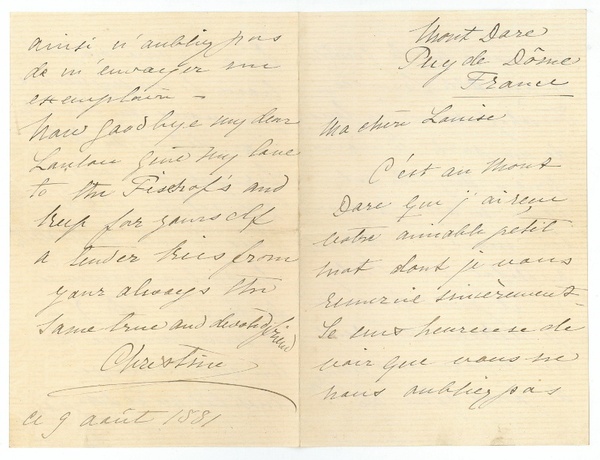 Mont Dore
Puy de Dôme
France
Ma chère Louise
C'est au Mont
Dore que j'ai reçu
votre aimable petit
mot dont je vous
remercie sincèrement.
Je suis heureuse de
voir que vous ne
nous oubliez pas
ainsi n'oubliez pas
de m'envoyer un
exemplaire –
Now goodbye my dear
give my love
to the Fischof's and
keep for yourself
a tender kiss from
your always the
same true and devoted friend
Christine
ce 9 août 1881